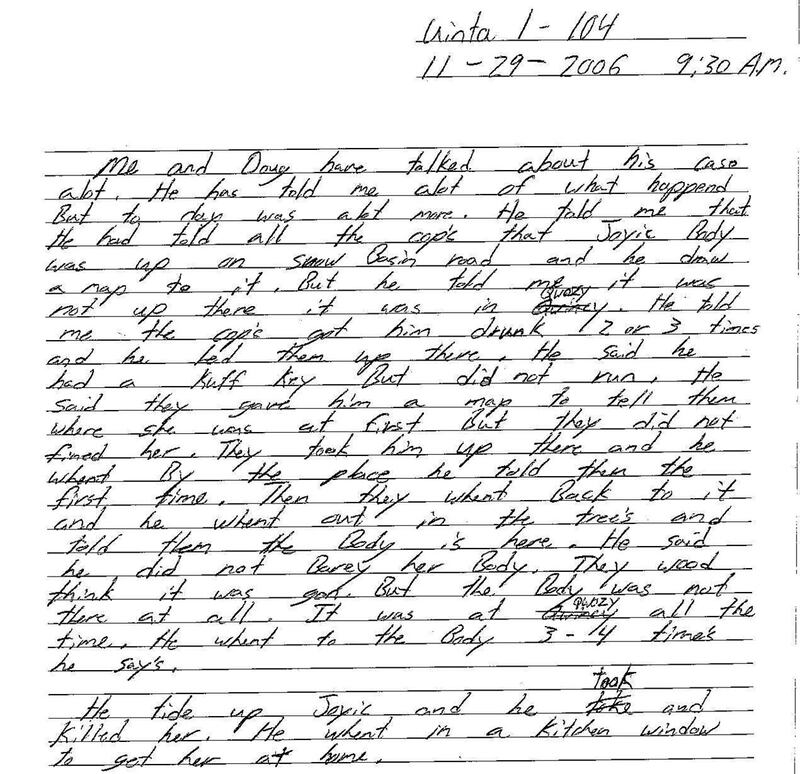 Uinta 1 - 104
11 - 29 - 2006 9:30 A.M.
Me and Doug have talked about his case
alot. He has told me alot of what happend
But to day was alot more. He told me that
He had told all the cop's that Joyic Body
was up on snow Basin road and he draw
a map to it. But he told me it was
not up there it was in Qwozy. He told
me the cop's got him drunk 2 or 3 times
and he led them up there. He said he
had a Kuff Key But did not run. He
said they gave him a map to tell them
where she was at first But they did not
fined her. They took him up there and he
whent By the place he told then the
first time. Then they whent Back to it
and he whent out in the tree's and
told them the Body is here. He said
he did not Barey her Body. They wood
think it was gon. But the Body was not
there at all. It was at Qwozy all the
time. He whent to the Body 3 - 4 time's
he say's.
He tide up Joyic and he took and
Killed her. He whent in a Kitchen window
to get her at home.